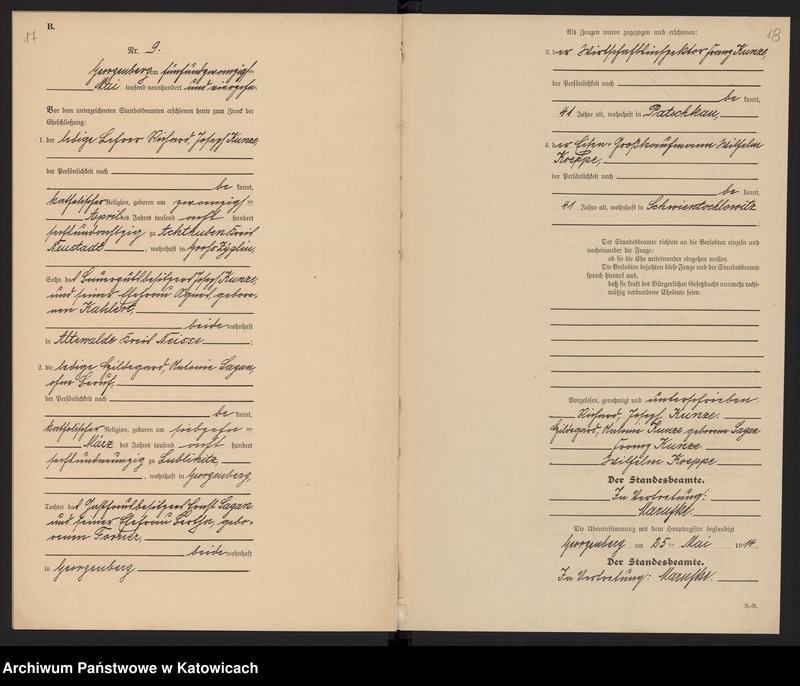 17
B.
Nr. 9.
Georgenberg am fünfundzwanzigsten
Mai tausend neunhundert und vierzehn.
Vor dem unterzeichneten Standesbeamten erschienen heute zum Zweck der
Eheschließung:
1. der ledige Lehrer Richard, Josef Kunze,
der Persönlichkeit nach
be kannt,
katholischer Religion, geboren am zwanzigsten
April des Jahres tausend acht hundert
sechsundachtzig zu Achthuben Kreis
Neustadt, wohnhaft in Groß Zyglin,
Sohn des Bauergutsbesitzers Josef Kunze,
und seiner Ehefrau Agnes, gebore-
nen Kahlert,
beide wohnhaft
in Altewalde Kreis Neisse;
2. die ledige Hildegard, Antonie Sagan,
ohne Beruf,
der Persönlichkeit nach
be kannt,
katholischer Religion, geboren am siebzehnten
März des Jahres tausend acht hundert
sechsundneunzig zu Lublinitz,
wohnhaft in Georgenberg,
Tochter des Gasthausbesitzers Ernst Sagan
und seiner Ehefrau Bertha, gebo-
renen
beide wohnhaft
in Georgenberg
18
Als Zeugen waren zugezogen und erschienen:
3. der Wirtschaftsinspektor Franz Kunze,
der Persönlichkeit nach
be kannt,
41 Jahre alt, wohnhaft in Patschkau,
4. der Eisen-Großkaufmann Wilhelm
Koeppe,
der Persönlichkeit nach
be kannt,
41 Jahre alt, wohnhaft in Schwientochlowitz
;
Der Standesbeamte richtete an die Verlobten einzeln und
nacheinander die Frage:
ob sie die Ehe miteinander eingehen wollen.
Die Verlobten bejahten diese Frage und der Standesbeamte
sprach hierauf aus,
daß sie kraft des Bürgerlichen Gesetzbuchs nunmehr recht-
mäßig verbundene Eheleute seien.
Vorgelesen, genehmigt und unterschrieben.
Richard, Josef Kunze.
Hildegard, Antonie Kunze geborene Sagan
Franz Kunze
Wilhelm Koeppe
Der Standesbeamte.
In Vertretung:
Maruske.
Die Übereinstimmung mit dem Hauptregister beglaubigt
Georgenberg am 25ten Mai 1914.
Der Standesbeamte.
In Vertretung: Maruske.
R.-R.
Archiwum Państwowe w Katowicach